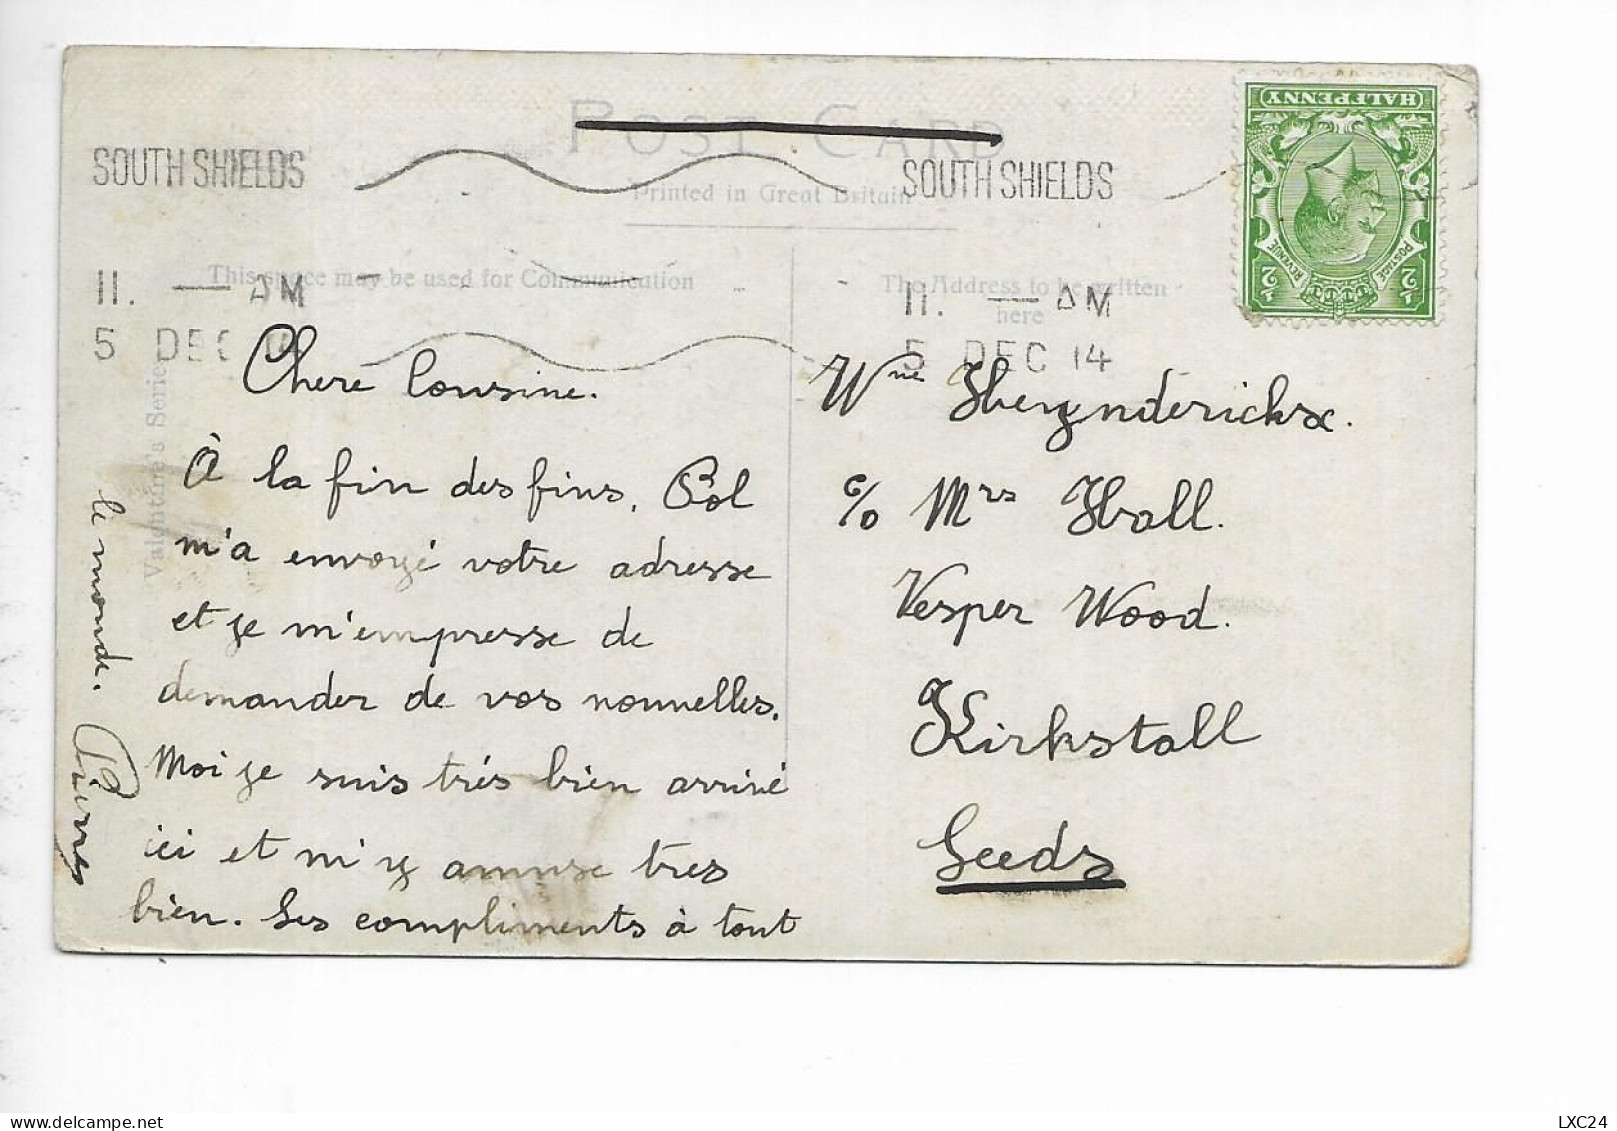 POST CARD
Printed in Great Britain
SOUTH SHIELDS
SOUTH SHIELDS
11. — AM
5 DEC 14
11. — AM
5 DEC 14
HALFPENNY
POSTAGE
REVENUE
1/2
1/2
This space may be used for Communication
The Address to be written
here
Valentine's Series
Chere Cousine.
À la fin des fins, Pol
m'a envoyé votre adresse
et je m'empresse de
demander de vos nounelles.
Moi je suis très bien arrivé
ici et m'y amuse tres
bien. Les compliments à tout
le monde. Pierre
Wne Heynderickx.
c/o Mrs Hall.
Vesper Wood.
Kirkstall
Leeds
LXC24